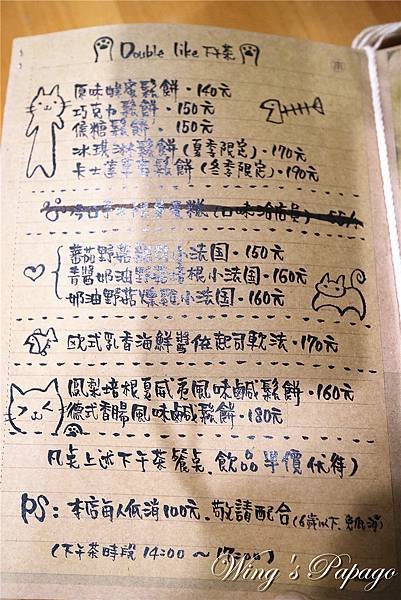 Double like 下午茶
原味蜂蜜鬆餅・140元
巧克力鬆餅・150元
焦糖鬆餅・150元
冰琪淋鬆餅(夏季限定)・170元
卡士達草莓鬆餅(冬季限定)・190元
蕃茄野菇 小法国・150元
青醬奶油野菇培根小法国・160元
奶油野菇燻雞小法国・160元
欧式乳香海鮮醬佐起司軟法・170元
鳳梨培根夏威夷風味鹹鬆餅・160元
德式香腸風味鹹鬆餅・180元
凡桌上述下午茶餐桌,飲品半價优待)
PS:本店每人低消100元,敬請配合(6歲以下,免低消)
(下午茶時段 14:00~17:00)
Wing's Papago